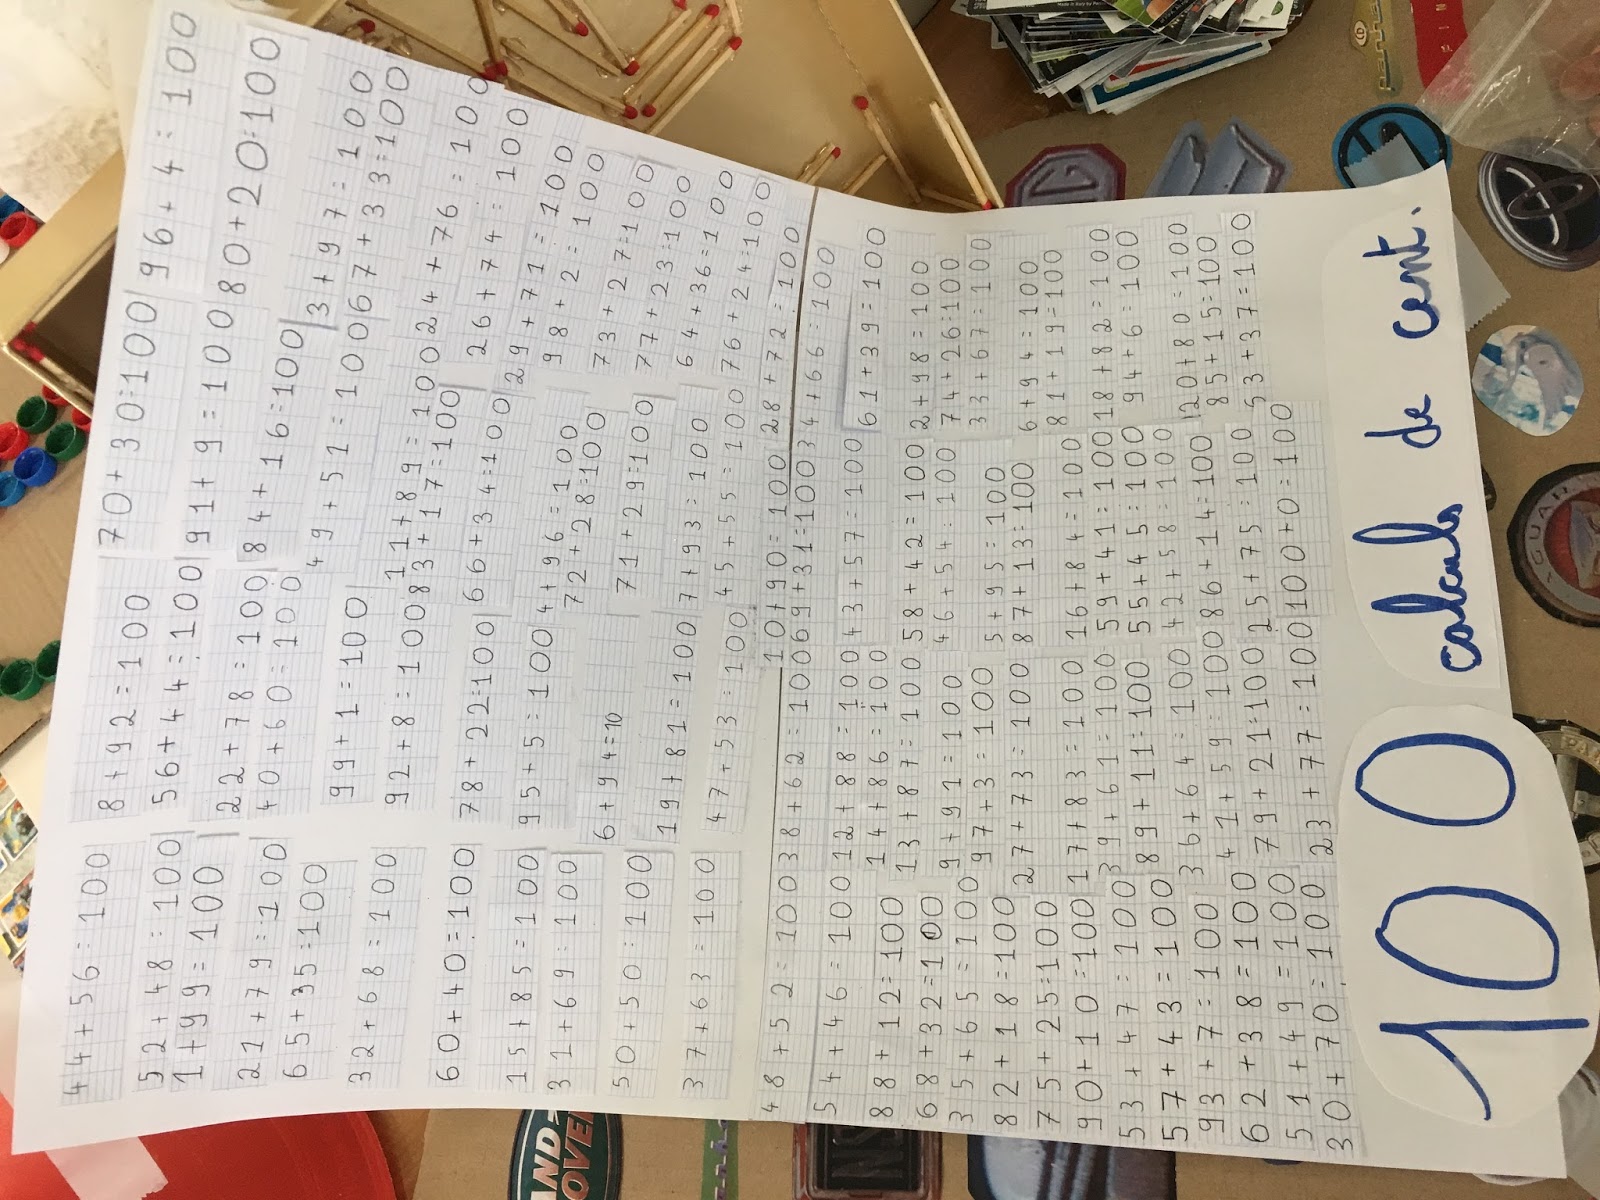 44+56=100
52+48=100
1+99=100
21+79=100
65+35=100
32+68=100
60+40=100
15+85=100
31+69=100
50+50=100
37+63=100
48+52=100
54+46=100
88+12=100
68+32=100
35+65=100
82+18=100
75+25=100
90+10=100
53+47=100
57+43=100
93+7=100
62+38=100
51+49=100
30+70=100
8+92=100
56+44=100
22+78=100
40+60=100
99+1=100
92+8=100
78+22=100
95+5=100
6+94=10
19+81=100
47+53=100
38+62=100
12+88=100
14+86=100
13+87=100
9+91=100
97+3=100
27+73=100
17+83=100
39+61=100
89+11=100
36+64=100
41+59=100
79+21=100
23+77=100
70+30=100
91+9=100
84+16=100
49+51=100
11+89=100
83+17=100
66+34=100
4+96=100
72+28=100
71+29=100
7+93=100
45+55=100
10+90=100
69+31=100
43+57=100
58+42=100
46+54=100
5+95=100
87+13=100
16+84=100
59+41=100
55+45=100
42+58=100
86+14=100
25+75=100
100+0=100
96+4=100
80+20=100
3+97=100
67+33=100
24+76=100
26+74=100
29+71=100
98+2=100
73+27=100
77+23=100
64+36=100
76+24=100
28+72=100
34+66=100
61+39=100
2+98=100
74+26=100
33+67=100
6+94=100
81+19=100
18+82=100
94+6=100
20+80=100
85+15=100
53+37=100
100 calculs de cent.
JAGUAR